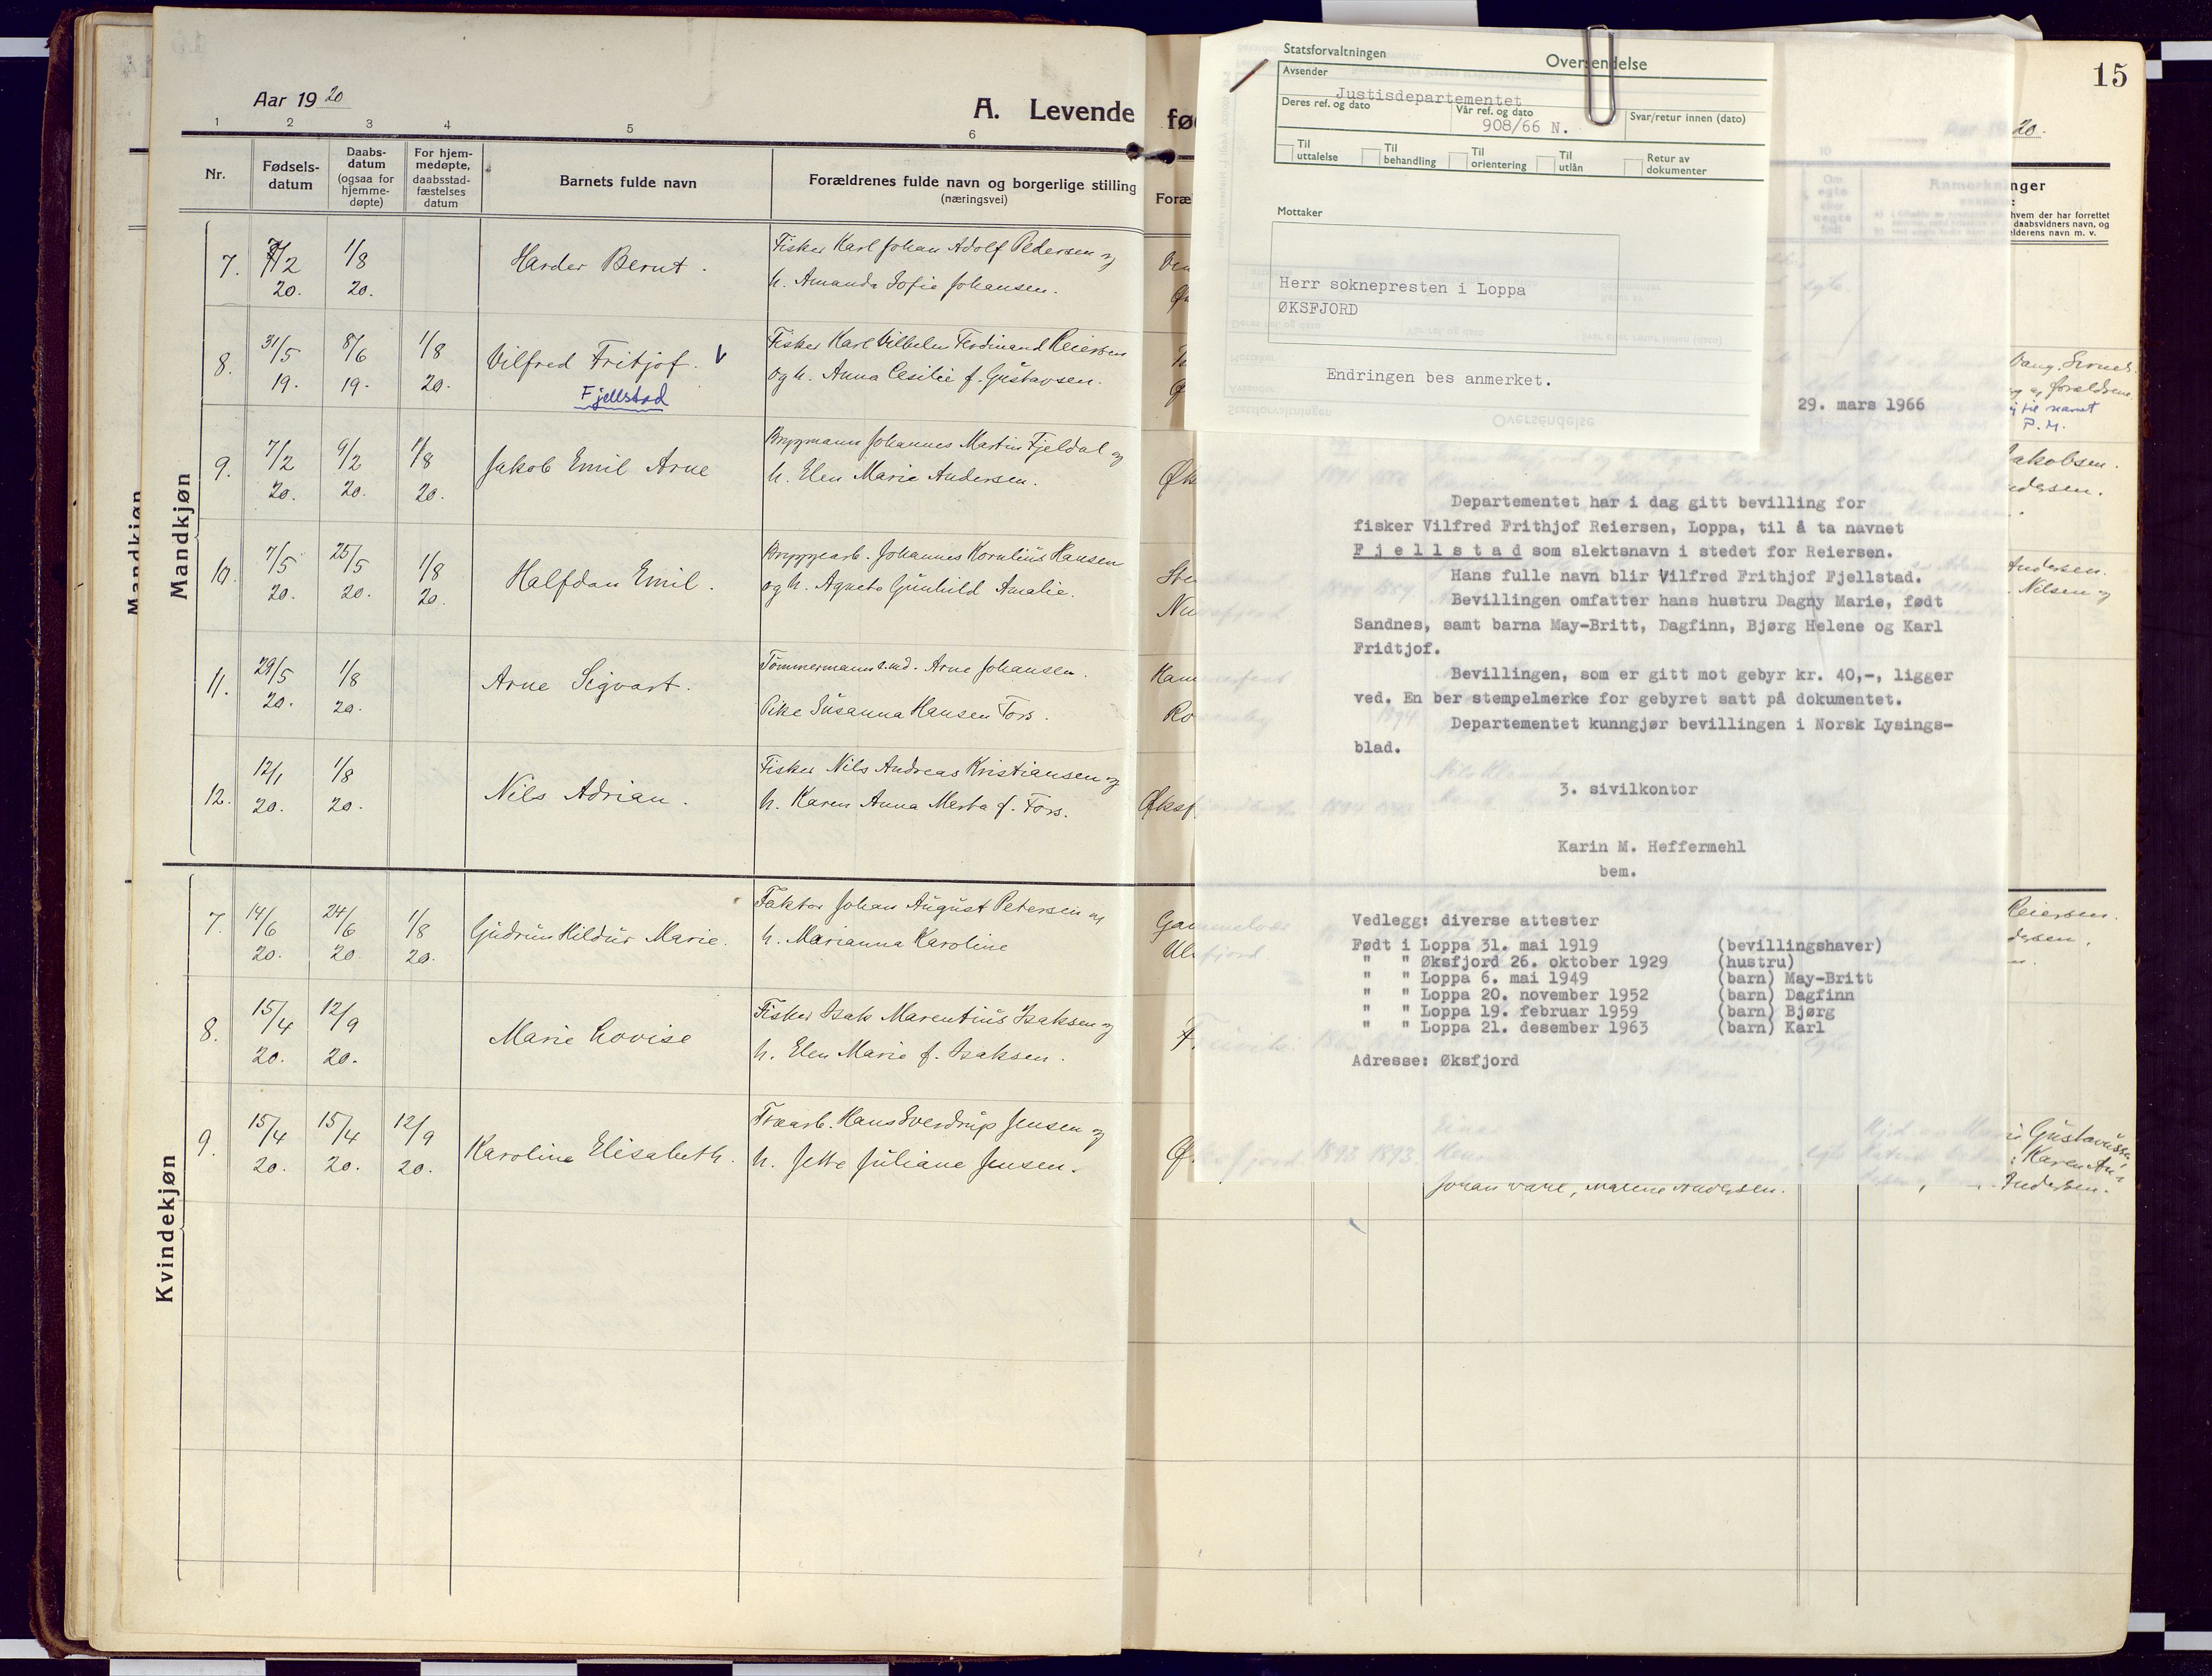 Aar 1920
A. Levende
fø
15
20.
1 2 3 4 5 6
Nr.
Fødsels-
datum
Daabs-
datum
(ogsaa for
hjemme-
døpte)
For hjem-
medøpte,
daabsstad-
fæstelses
datum
Barnets fulde navn
Forældrenes fulde navn og borgerlige stilling
(næringsvei)
Foræl
Mandkjøn
Mandkjøn
7. 1/8 Harder Bernt. Fisker Karl Johan Adolf Pedersen og
20. 20. h. Amanda Sofie Johansen.
8. 31/5 8/6 1/8 Vilfred Fritjof. V Fisker Karl Vilhelm Ferdinand Reiersen
19. 19. 20. og h. Anna Cesilie f. Gustavsen.
Fjellstad
9. 7/2 9/2 1/8 Jakob Emil Arne Bryggmann Johannes Martin Fjeldal og
20. 20. 20. h. Elen Marie Andersen.
10. 7/5 25/5 1/8 Halfdan Emil. Bryggearb. Johannes Kornelius Hansen
20. 20. 20. og h. Agneta Gunhild Amalie.
11. 29/5 1/8 Arne Sigvart. Tømmermann Arne Johansen.
20. 20. Pike Susanna Hansen Fors.
12. 12/1 1/8 Nils Adrian. Fisker Nils Andreas Kristiansen og
20. 20. h. Karen Anna Marta f. Fors.
Kvindekjøn
7. 14/6 24/6 1/8 Gudrun Hildur Marie. Faktor Johan August Petersen og
20. 20. 20. h. Marianna Karoline
8. 15/4 12/9 Marie Lovise Fisker Isak Marentius Isaksen og
20. 20. h. Elen Marie f. Isaksen.
9. 15/4 15/4 12/9 Karoline Elisabeth. Træarb. Hans Sverdrup Jensen og
20. 20. 20. h. Jette Juliane Jensen.
Statsforvaltningen
Oversendelse
Avsender
Justisdepartementet
Deres ref. og dato
Vår ref. og dato
908/66 N.
Svar/retur innen (dato)
Til
uttalelse
Til
behandling
Til
orientering
Til
utlån
Retur av
dokumenter
Mottaker
Herr soknepresten i Loppa
ØKSFJORD
Endringen bes anmerket.
29. mars 1966
Departementet har i dag gitt bevilling for
fisker Vilfred Frithjof Reiersen, Loppa, til å ta navnet
F j e l l s t a d som slektsnavn i stedet for Reiersen.
Hans fulle navn blir Vilfred Frithjof Fjellstad.
Bevillingen omfatter hans hustru Dagny Marie, født
Sandnes, samt barna May-Britt, Dagfinn, Bjørg Helene og Karl
Fridtjof.
Bevillingen, som er gitt mot gebyr kr. 40,-, ligger
ved. En ber stempelmerke for gebyret satt på dokumentet.
Departementet kunngjør bevillingen i Norsk Lysings-
blad.
3. sivilkontor
Karin M. Heffermehl
bem.
Vedlegg: diverse attester
Født i Loppa 31. mai 1919 (bevillingshaver)
" " Øksfjord 26. oktober 1929 (hustru)
" " Loppa 6. mai 1949 (barn) May-Britt
" " Loppa 20. november 1952 (barn) Dagfinn
" " Loppa 19. februar 1959 (barn) Bjørg
" " Loppa 21. desember 1963 (barn) Karl
Adresse: Øksfjord
nger
hvem der har forrettet
daabsvidners navn, og
elderens navn m. v.
P. M.
Jakobsen.
Andersen.
Nilsen og
Reiersen.
Gustavssen
Karen An
Andersen.
Johan Dahl, Malene Andersen.